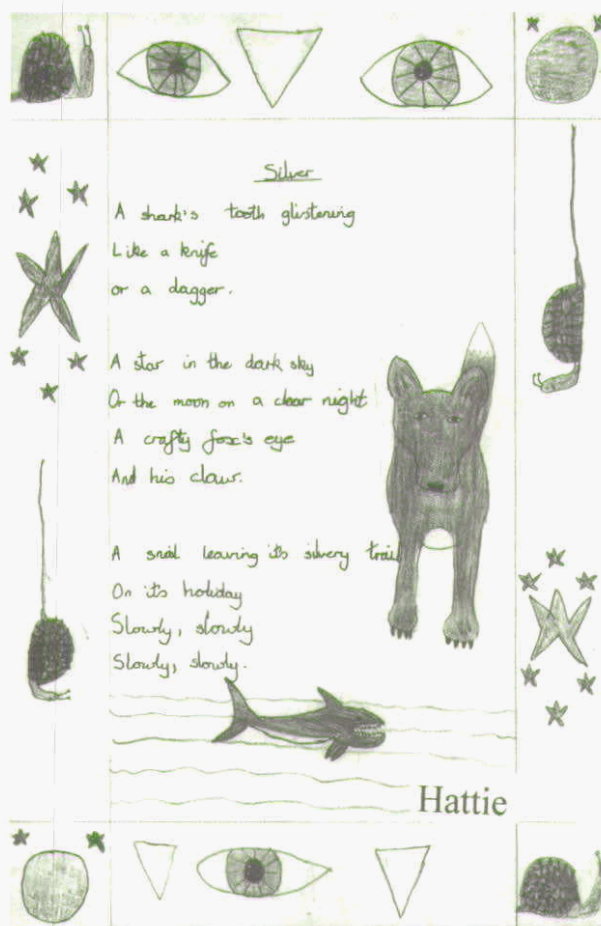 Silver
A shark's tooth glistening
Like a knife
or a dagger.
A star in the dark sky
Or the moon on a clear night
A crafty fox's eye
And his claw.
A snail leaving it's silvery trail
On it's holiday
Slowly, slowly
Slowly, slowly.
Hattie